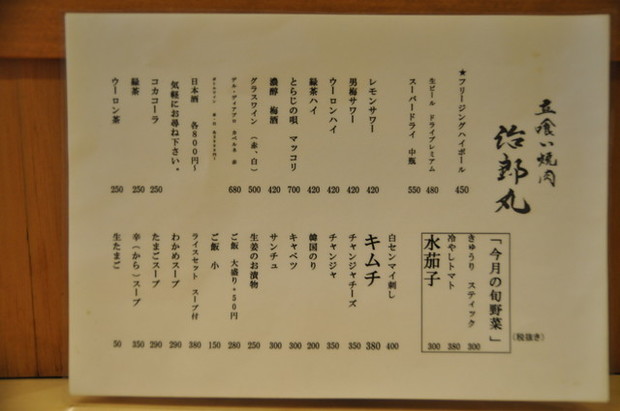 立喰い焼肉
治郎丸
★フリージングハイボール 450
生ビール ドライプレミアム 480
スーパードライ 中瓶 550
レモンサワー 420
男梅サワー 420
ウーロンハイ 420
緑茶ハイ 420
とらじの唄 マッコリ 700
濃醇 梅酒 420
グラスワイン（赤、白） 500
デル・ディアブロ カベルネ 赤 680
日本酒 各800円～
気軽にお尋ね下さい。
コカコーラ 250
緑茶 250
ウーロン茶 250
（税抜き）
「今月の旬野菜」
きゅうり スティック 300
冷やしトマト 380
水茄子 300
白センマイ刺し 400
キムチ 380
チャンジャチーズ 350
チャンジャ 350
韓国のり 200
キャベツ 300
サンチュ 300
生姜のお漬物 250
ご飯 大盛り+50円 280
ご飯 小 150
ライスセット スープ付 380
わかめスープ 290
たまごスープ 290
辛（から）スープ 350
生たまご 50